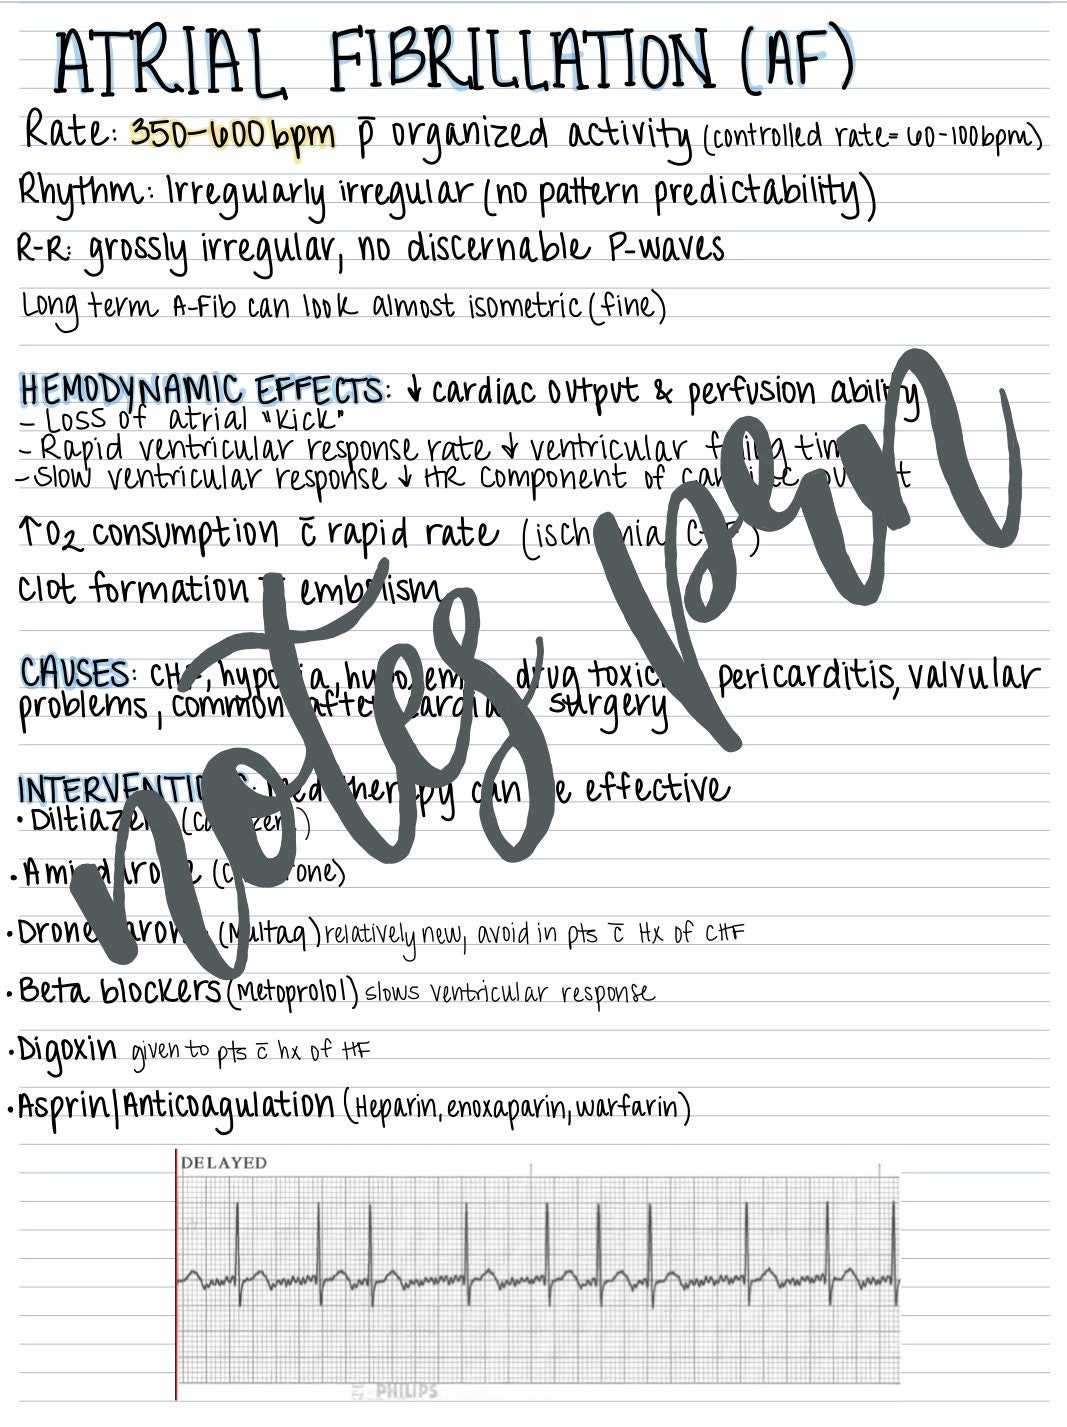 ATRIAL FIBRILLATION (AF)
Rate: 350-600bpm p̄ organized activity (controlled rate= 60-100bpm)
Rhythm: Irregularly irregular (no pattern predictability)
R-R: grossly irregular, no discernable P-waves
Long term A-Fib can look almost isometric (fine)
HEMODYNAMIC EFFECTS: ↓ cardiac output & perfusion ability
- Loss of atrial "Kick"
- Rapid ventricular response rate ↓ ventricular filling time
- Slow ventricular response ↓ HR component of cardiac output
↑O2 consumption c̄ rapid rate (ischemia, CHF)
Clot formation embolism
CAUSES: CHF, hypoxia, drug toxicity, pericarditis, valvular
problems, common after cardiac surgery
INTERVENTIONS: Med therapy can be effective
• Diltiazem (Cardizem)
• Amiodarone (Cordarone)
• Dronedarone (Multaq) relatively new, avoid in pts c̄ Hx of CHF
• Beta blockers (Metoprolol) slows ventricular response
• Digoxin given to pts c̄ hx of HF
• Asprin/Anticoagulation (Heparin, enoxaparin, warfarin)
notes pen
DELAYED
PHILIPS